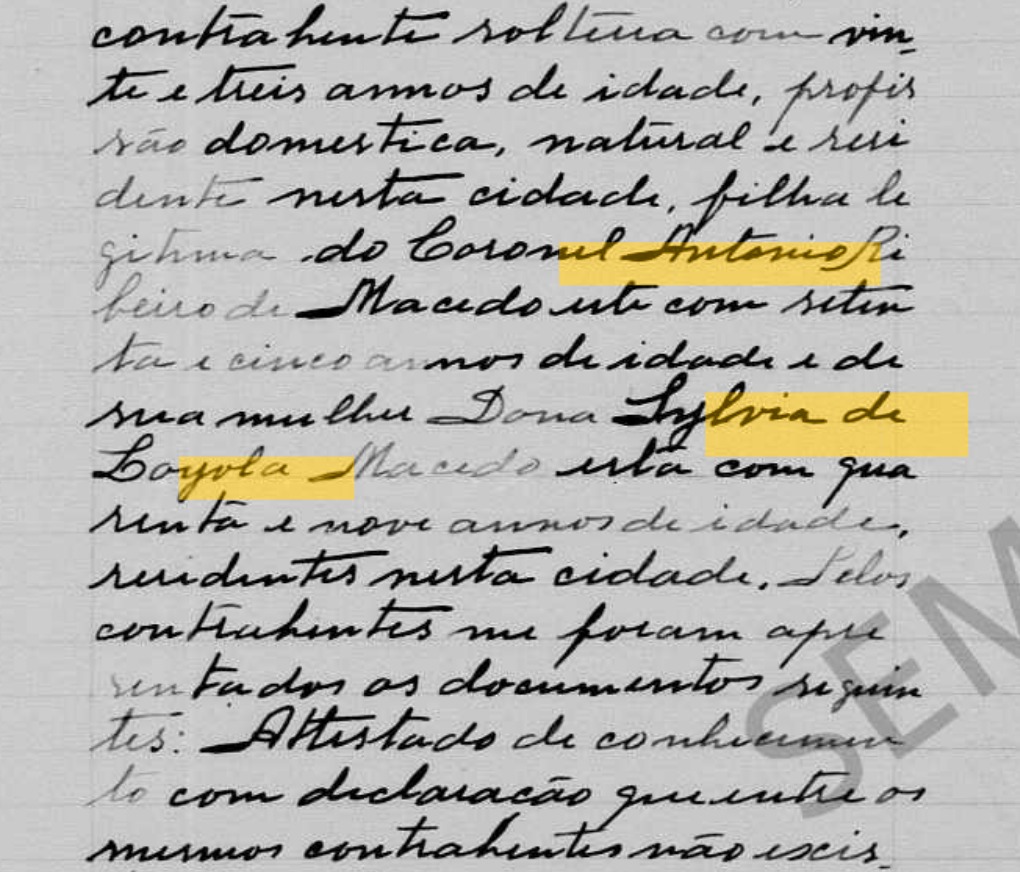 contrahente solteira com vin-
te e treis annos de idade, profis
são domestica, natural e resi
dente nesta cidade, filha le
gitima do Coronel Antonio Ri
beiro de Macedo este com seten
ta e cinco annos de idade e de
sua mulher Dona Sylvia de
Loyola Macedo esta com qua
renta e nove annos de idade,
residentes nesta cidade. Pelos
contrahentes me foram apre
sentados os documentos seguin
tes: Attestado de conhecimen
to com declaração que entre os
mesmos contrahentes não exis-
SEM